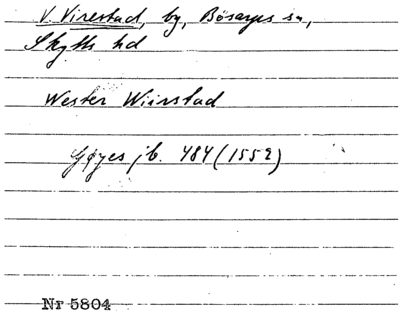 V. Virestad, by, Bösarps sn,
Skytts hd
Wester Wiirstad
Gøyes jb. 484 (1552)
Nr 5804